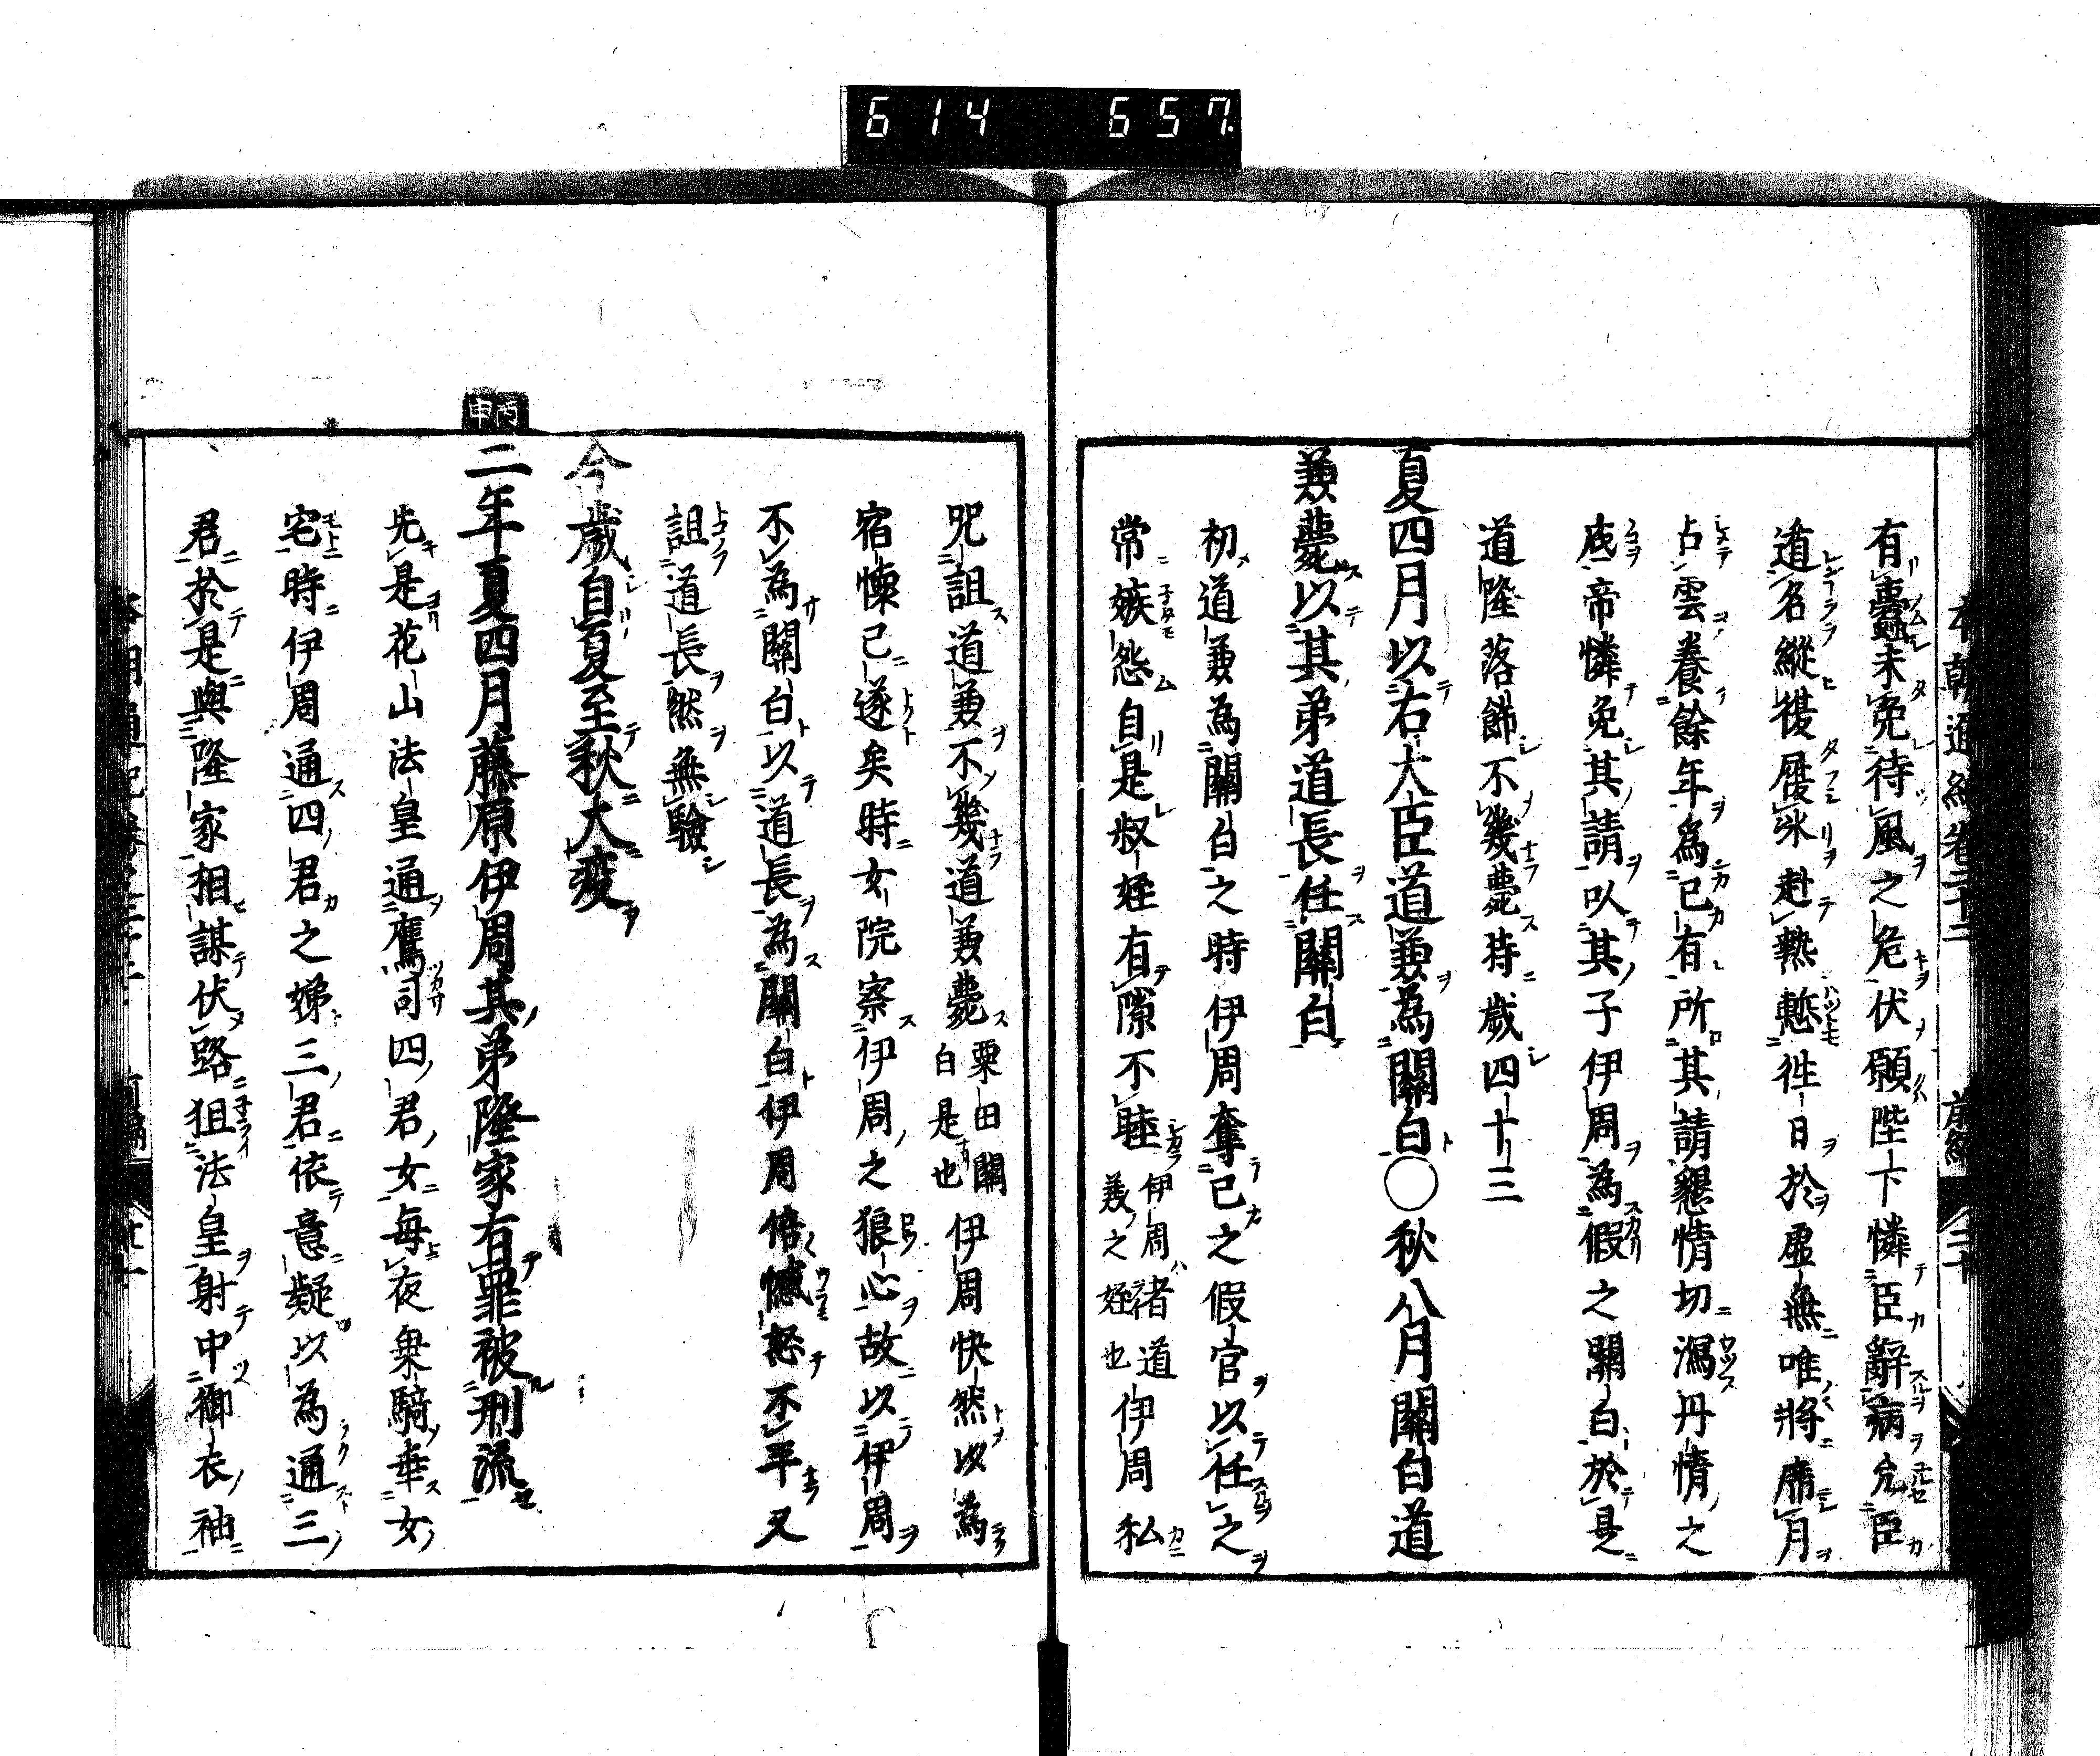 614 657.
有蠹未免待風之危伏願陛下憐臣辭病允臣
道名縱復履氷赴熱慙往日於虛無唯將席月
占雲養餘年為己有所其請懇情切瀉丹情之
底帝憐免其請以其子伊周為假之關白於是
道隆落餝不幾薨時歲四十三
夏四月以右大臣道兼為關白○秋八月關白道
兼薨以其弟道長任關白
初道兼為關白之時伊周奪己之假官以任之
常嫉怨自是叔姪有隙不睦伊周者道兼之姪也伊周私
咒詛道兼不幾道兼薨粟田關白是也伊周快然以為
宿懷己遂矣時女院察伊周之狼心故以伊周
不為關白以道長為關白伊周倍憾怒不平又
詛道長然無驗
今歲自夏至秋大疫
丙申
二年夏四月藤原伊周其弟隆家有罪被刑流
先是花山法皇通鷹司四君女每夜乘騎垂女
宅時伊周通四君之娣三君依意疑以為通三
君於是與隆家相謀伏路狙法皇射中御衣袖